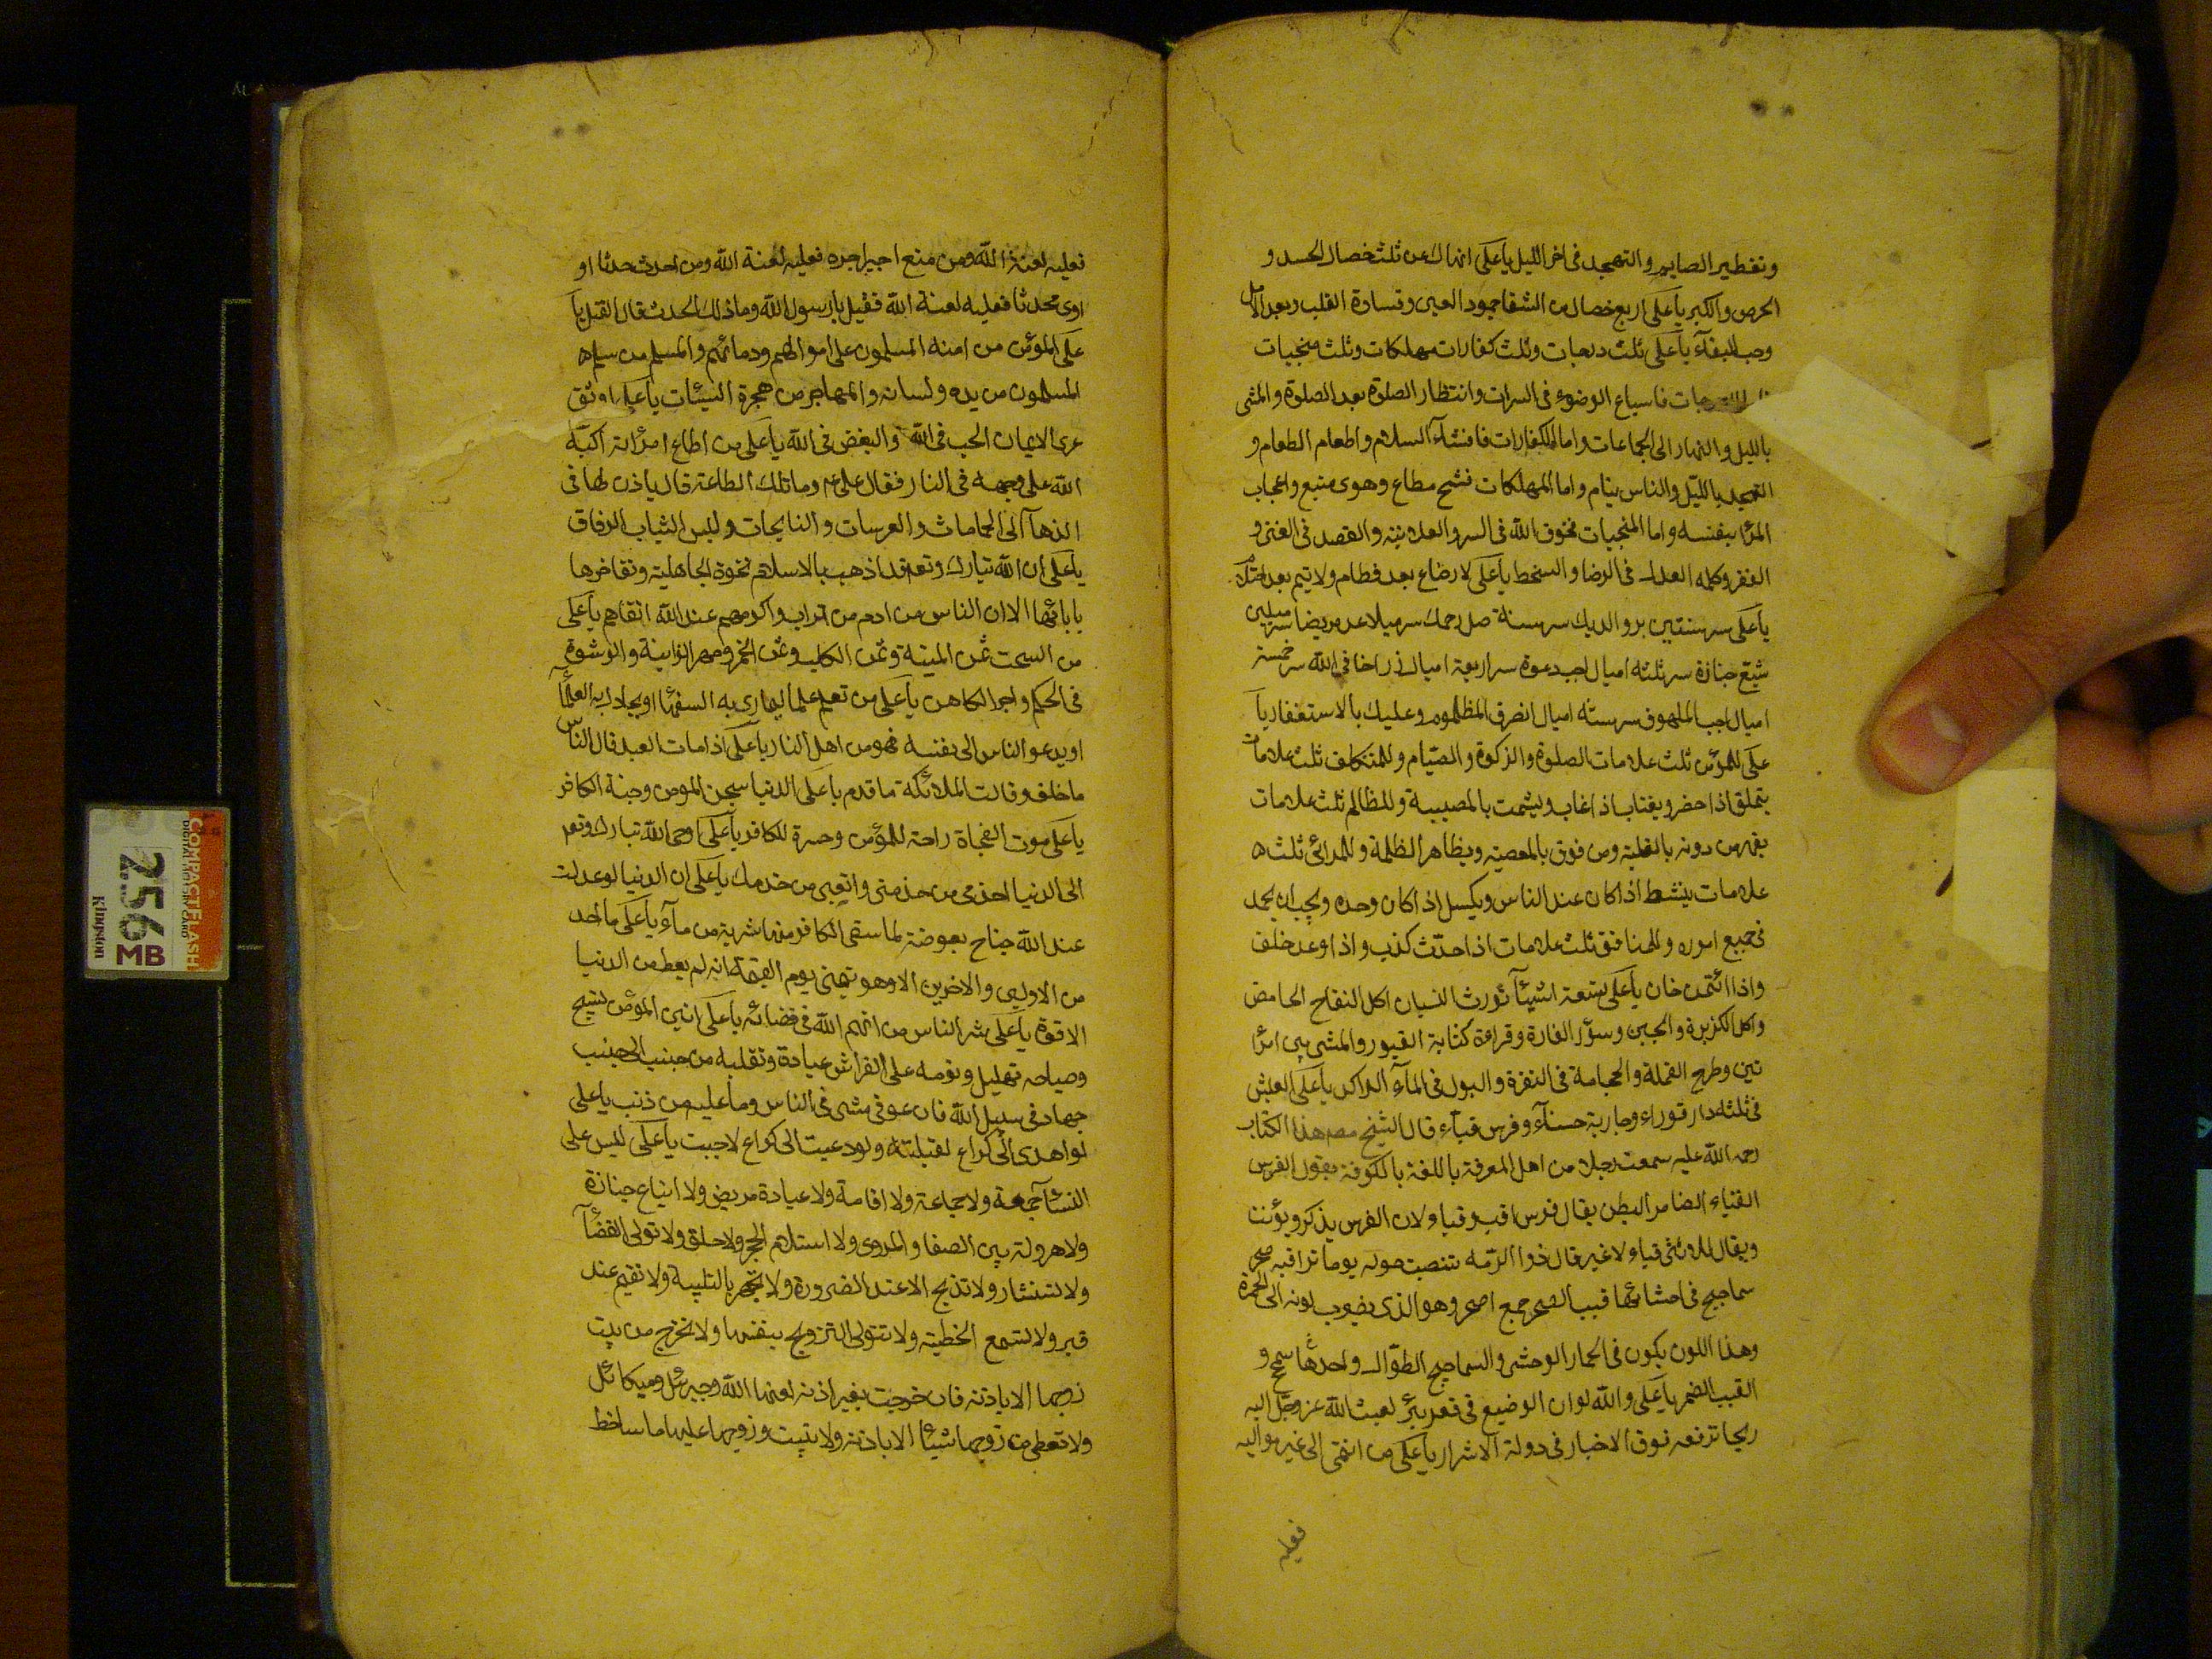 وتفطير الصايم والتهجد فى اخر الليل يا على انهاك عن ثلث خصال الحسد و
الحرص والكبر يا على اربع خصال من الشقا جمود العين وقساوة القلب وبعد الامل
وحب البقآء يا على ثلث درجات وثلث كفارات وثلث مهلكات وثلث منجيات
فاسباغ الوضوء فى السبرات وانتظار الصلوة بعد الصلوة والمشى
بالليل والنهار الى الجماعات واما الكفارات فافشآء السلام واطعام الطعام و
التهجد بالليل والناس ينام واما المهلكات فشح مطاع وهوى متبع واعجاب
المرء بنفسه واما المنجيات فخوف الله فى السر والعلانية والقصد فى الغنى و
الفقر وكلمه العدل فى الرضا والسخط يا على لا رضاع بعد فطام ولا يتم بعد احتلام
يا على سر سنتين بر والديك سر سنة صل رحمك سر ميلا عد مريضا سر ميلين
شيع جنازة سر ثلثه اميال اجب دعوة سر اربعة اميال زر اخا فى الله سر خمسة
اميال اجب الملهوف سر سته اميال انصر المظلوم وعليك بالاستغفار يا
على للمؤمن ثلث علامات الصلوة والزكوة والصيام وللمتكلف ثلث علامات
يتملق اذا حضر ويغتاب اذ اغاب ويشمت بالمصيبة وللظالم ثلث علامات
يقهر من دونه بالغلبة ومن فوق بالمعصية ويظاهر الظلمة وللمرائى ثلث
علامات ينشط اذا كان عند الناس ويكسل اذا كان وحده ويحب ان يحمد
فى جميع اموره وللمنافق ثلث علامات اذا حدث كذب واذا وعد خلف
واذا ائتمن خان يا على تسعة اشيآء تورث النسيان اكل التفاح الحامض
واكل الكزبرة والجبن وسؤر الفارة وقراءة كتابة القبور والمشى بين امرا
تين وطرح القملة والحجامة فى النقرة والبول فى المآء الراكد يا على العيش
فى ثلثه دار قوراء وجارية حسنآء وفرس قباء قال الشيخ مصم هذا الكتاب
رحمه الله عليه سمعت رجلا من اهل المعرفة باللغة بالكوفة يقول الفرس
القباء الضامر البطن يقال فرس اقب وقباء لان الفرس يذكر ويؤنث
ويقال للانثى قباء لا غير قال ذوا الرمه تنصبت حوله يوما تراقبه صحر
سماحيج فى احشائها قبب الصحر جمع اصحر وهو الذى يضرب لونه الى الحمرة
وهذا اللون يكون فى الحمار الوحشى والسماحيج الطوال واحدها سمحج و
القبب الضمر يا على والله لو ان الوضيع فى قعر بئر لبعث الله عز وجل اليه
ريحا ترفعه فوق الاخيار فى دولة الاشرار يا على من انتمى الى غير مواليه
فعليه
فعليه لعنة الله ومن منع اجيرا اجره فعليه لعنة الله ومن احدث حدثا او
اوى محدثا فعليه لعنة الله فقيل يا رسول الله وما ذلك الحدث قال القتل يا
على المؤمن من امنه المسلمون على اموالهم ودمائهم والمسلم من سلم
المسلمون من يده ولسانه والمهاجر من هجرة السيئات يا على اوثق
عرى الايمان الحب فى الله والبغض فى الله يا على من اطاع امرأته اكبه
الله على وجهه فى النار فقال على ع وما تلك الطاعة قال ياذن لها فى
الذهآب الى الحمامات والعرسات والنايحات ولبس الثياب الرقاق
يا على ان الله تبارك وتعه قد اذهب بالاسلام نخوة الجاهلية وتفاخرها
بابائها الا ان الناس من ادم من تراب واكرمهم عند الله اتقاهم يا على
من السحت ثمن الميتة وثمن الكلب وثمن الخمر ومهر الزانية والرشوة
فى الحكم واجر الكاهن يا على من تعلم علما ليمارى به السفهآء او يجادل به العلمآء
او يدعو الناس الى نفسه فهو من اهل النار يا على اذا مات العبد قال الناس
ما خلف وقالت الملائكة ما قدم يا على الدنيا سجن المومن وجنة الكافر
يا على موت الفجاة راحة للمؤمن وحسرة للكافر يا على اوحى الله تبارك وتعه
الى الدنيا اخدمى من خدمنى واتعبى من خدمك يا على ان الدنيا لو عدلت
عند الله جناح بعوضة لما سقى الكافر منها شربة من مآء يا على ما احد
من الاولين والاخرين الا وهو يتمنى يوم القيمة انه لم يعط من الدنيا
الا قوة يا على شر الناس من اتهم الله فى قضائه يا على انين المؤمن تسبيح
وصياحه تهليل ونومه على الفراش عبادة وتقلبه من جنب الى جنب
جهاد فى سبيل الله فان عوفى مشى فى الناس وما عليه من ذنب يا على
لو اهدى الى كراع لقبلته ولو دعيت الى كراع لاجبت يا على ليس على
النسآء جمعة ولا جماعة ولا اقامة ولا عيادة مريض ولا اتباع جنازة
ولا هرولة بين الصفا والمروى ولا استلام الحجر ولا حلق ولا تولى القضآء
ولا تستشار ولا تذبح الا عند الضرورة ولا تجهر بالتلبية ولا تقيم عند
قبر ولا تسمع الخطبة ولا تتولى التزويج بنفسها ولا تخرج من بيت
زوجها الا باذنه فان خرجت بغير اذنه لعنها الله وجبرئل وميكائل
ولا تعطى من زوجها شيئا الا باذنه ولا تبيت وزوجها عليها ساخط
COMPACTFLASH
256
MB
Kingston